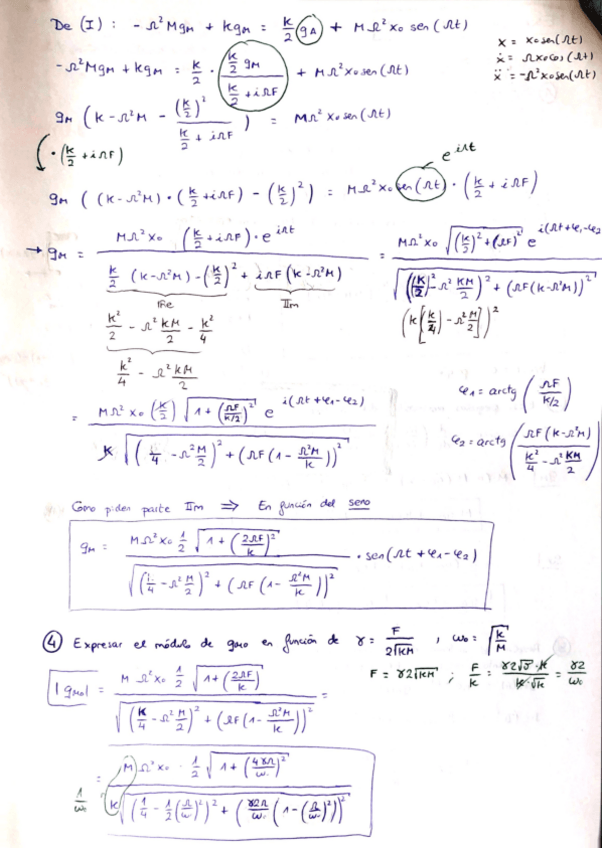 De (I): -Ω²Mg_M + kg_M = k/2 g_A + MΩ²x₀ sen(Ωt)
x = x₀sen(Ωt)
ẋ = Ωx₀cos(Ωt)
ẍ = -Ω²x₀sen(Ωt)
-Ω²Mg_M + kg_M = k/2 · (k/2 g_M)/(k/2 + iΩF) + MΩ²x₀sen(Ωt)
g_M (k - Ω²M - (k/2)²/(k/2 + iΩF)) = MΩ²x₀sen(Ωt)
·(k/2 + iΩF)
e^{iΩt}
g_M ((k-Ω²M)·(k/2 + iΩF) - (k/2)²) = MΩ²x₀ sen(Ωt) · (k/2 + iΩF)
→ g_M = (MΩ²x₀ (k/2 + iΩF)·e^{iΩt}) / (k/2 (k-Ω²M) - (k/2)² + iΩF(k-Ω²M)) = (MΩ²x₀ √((k/2)² + (ΩF)²) e^{i(Ωt+φ₁-φ₂)}) / √((k/2)² - Ω² kM/2)² + (ΩF(k-Ω²M))²
Re
Im
k²/2 - Ω² kM/2 - k²/4
(k[k/4 - Ω² M/2])²
k²/4 - Ω² kM/2
= (MΩ²x₀ (k/2) √(1 + (ΩF/(k/2))²) e^{i(Ωt+φ₁-φ₂)}) / (k √((k/4 - Ω²M/2)² + (ΩF(1 - Ω²M/k))²))
φ₁ = arctg (ΩF/(k/2))
φ₂ = arctg (ΩF(k-Ω²M) / (k²/4 - Ω² kM/2))
Como piden parte Im ⇒ En función del seno
g_M = (MΩ²x₀ 1/2 √(1 + (2ΩF/k)²)) / √((k/4 - Ω²M/2)² + (ΩF(1 - Ω²M/k))²) · sen(Ωt + φ₁ - φ₂)
④ Expresar el módulo de g_M0 en función de γ = F/(2√kM) , ω₀ = √(k/M)
F = γ2√kM ; F/k = (γ2√M·k)/(k·√k) = γ2/ω₀
|g_M0| = (MΩ²x₀ 1/2 √(1 + (2ΩF/k)²)) / √((k/4 - Ω²M/2)² + (ΩF(1 - Ω²M/k))²) =
= (MΩ²x₀ · 1/2 √(1 + (4γΩ/ω₀)²)) / (k √((1/4 - 1/2 (Ω/ω₀)²)² + (γ2Ω/ω₀ (1 - (Ω/ω₀)²))²))
1/ω₀